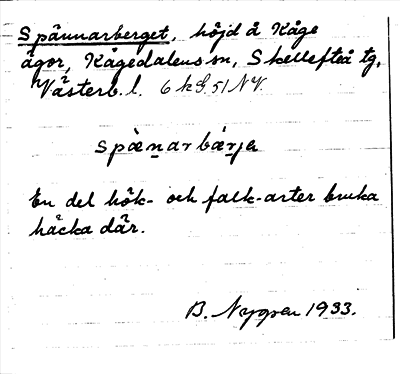 Spännarberget, höjd å Kåge
ägor, Kågedalens sn, Skellefteå tg,
Västerb. l. 6 k G 51 NV.
spæ̀nar bǽrja
En del hök- och falk-arter bruka
häcka där.
B. Nygren 1933.